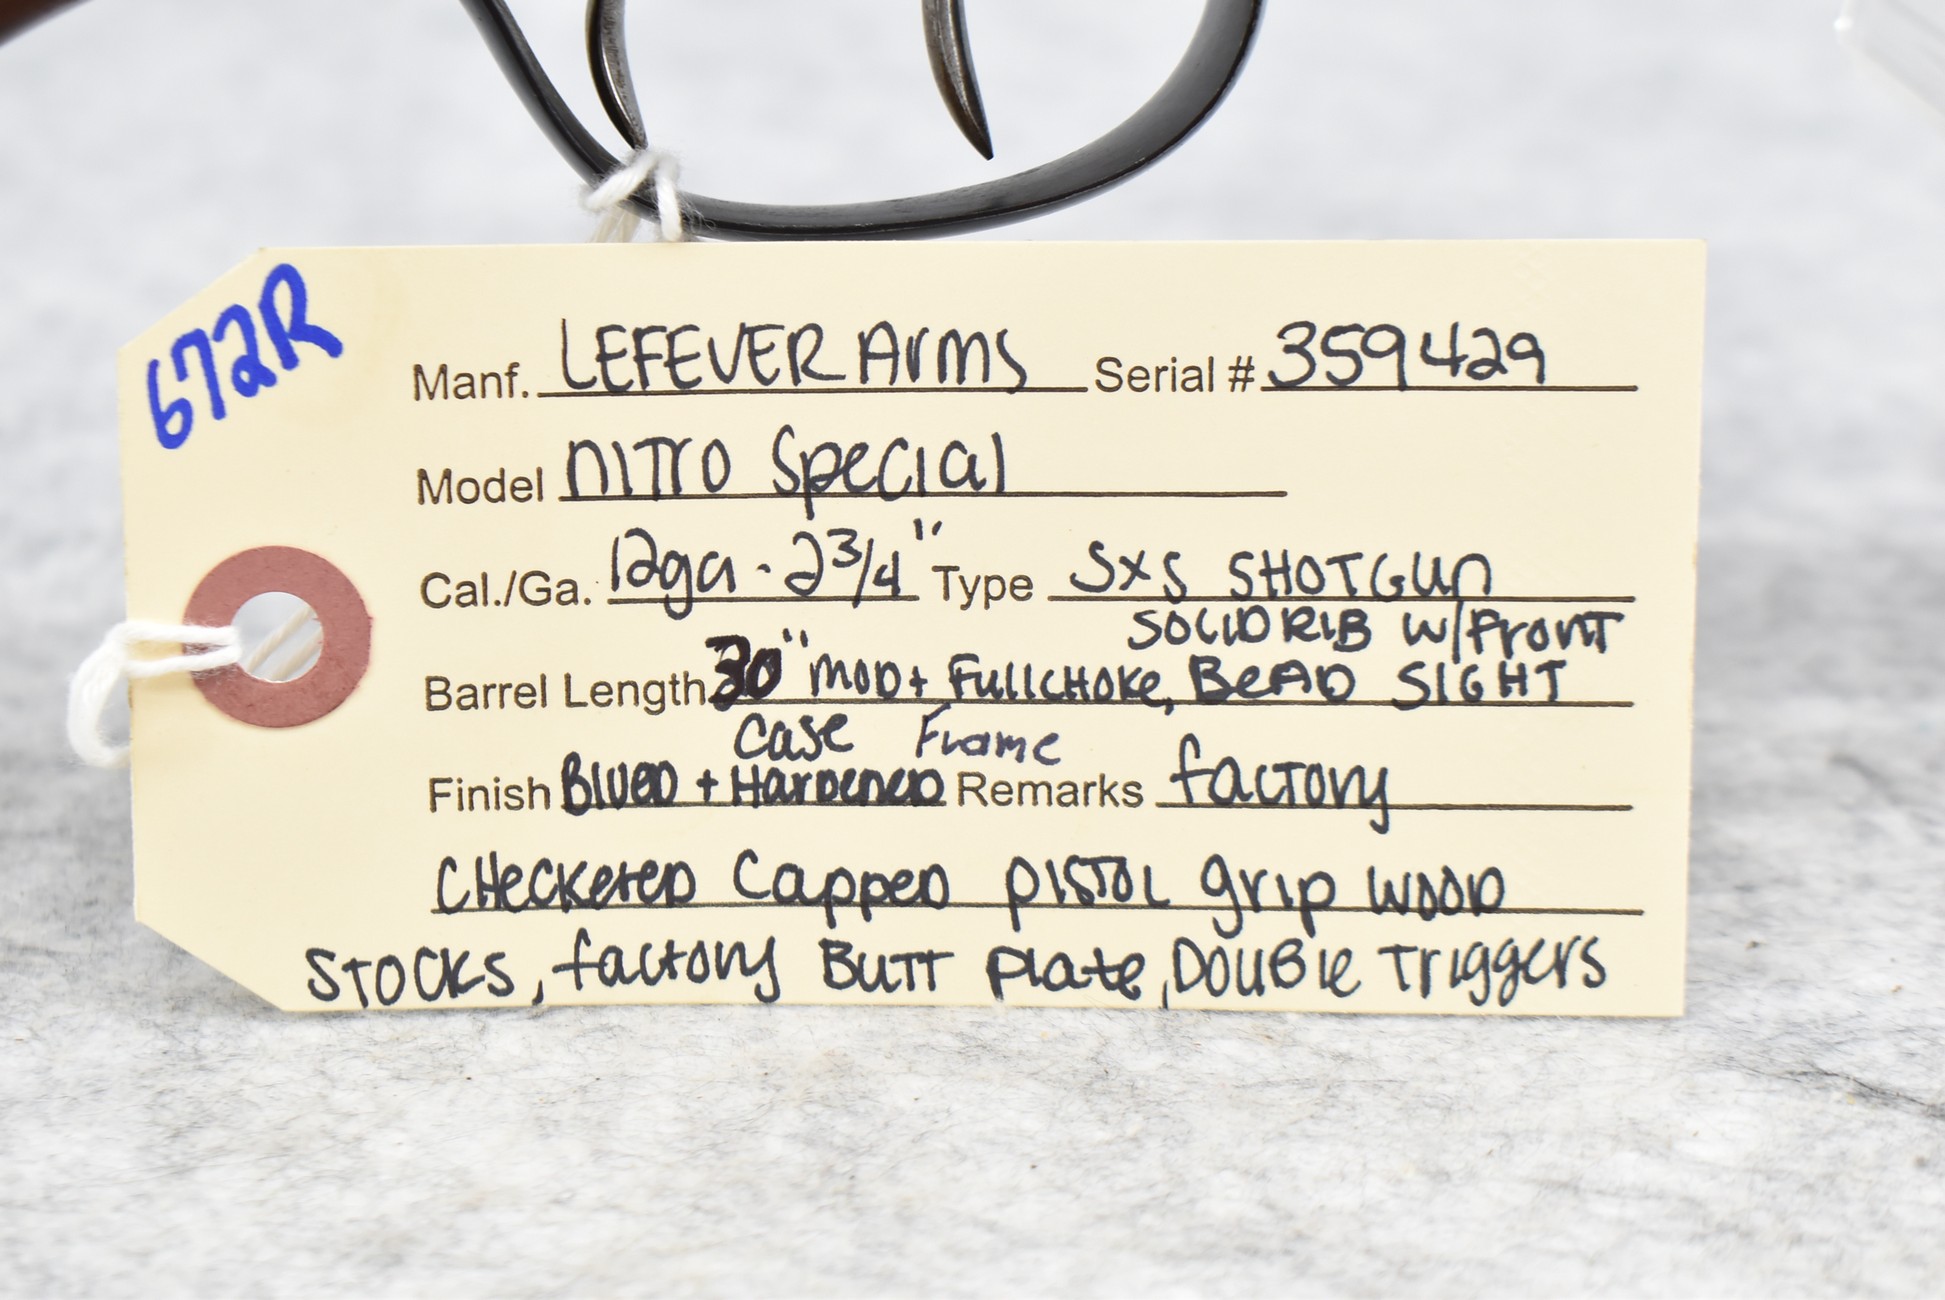 672R
Manf. LEFEVER Arms Serial # 359429
Model NITro Special
Cal./Ga. 12ga. 2 3/4" Type SxS SHOTGun
SOLID RIB w/Front
Barrel Length 30" MOD + FullCHOKe, BeAD SIGHT
Case Frame
Finish BlueD + HarDeneD Remarks factory
CHeckereD CappeD pISTOL grip WOOD
STOCKS, factory BUTT plate, DOUBle Triggers